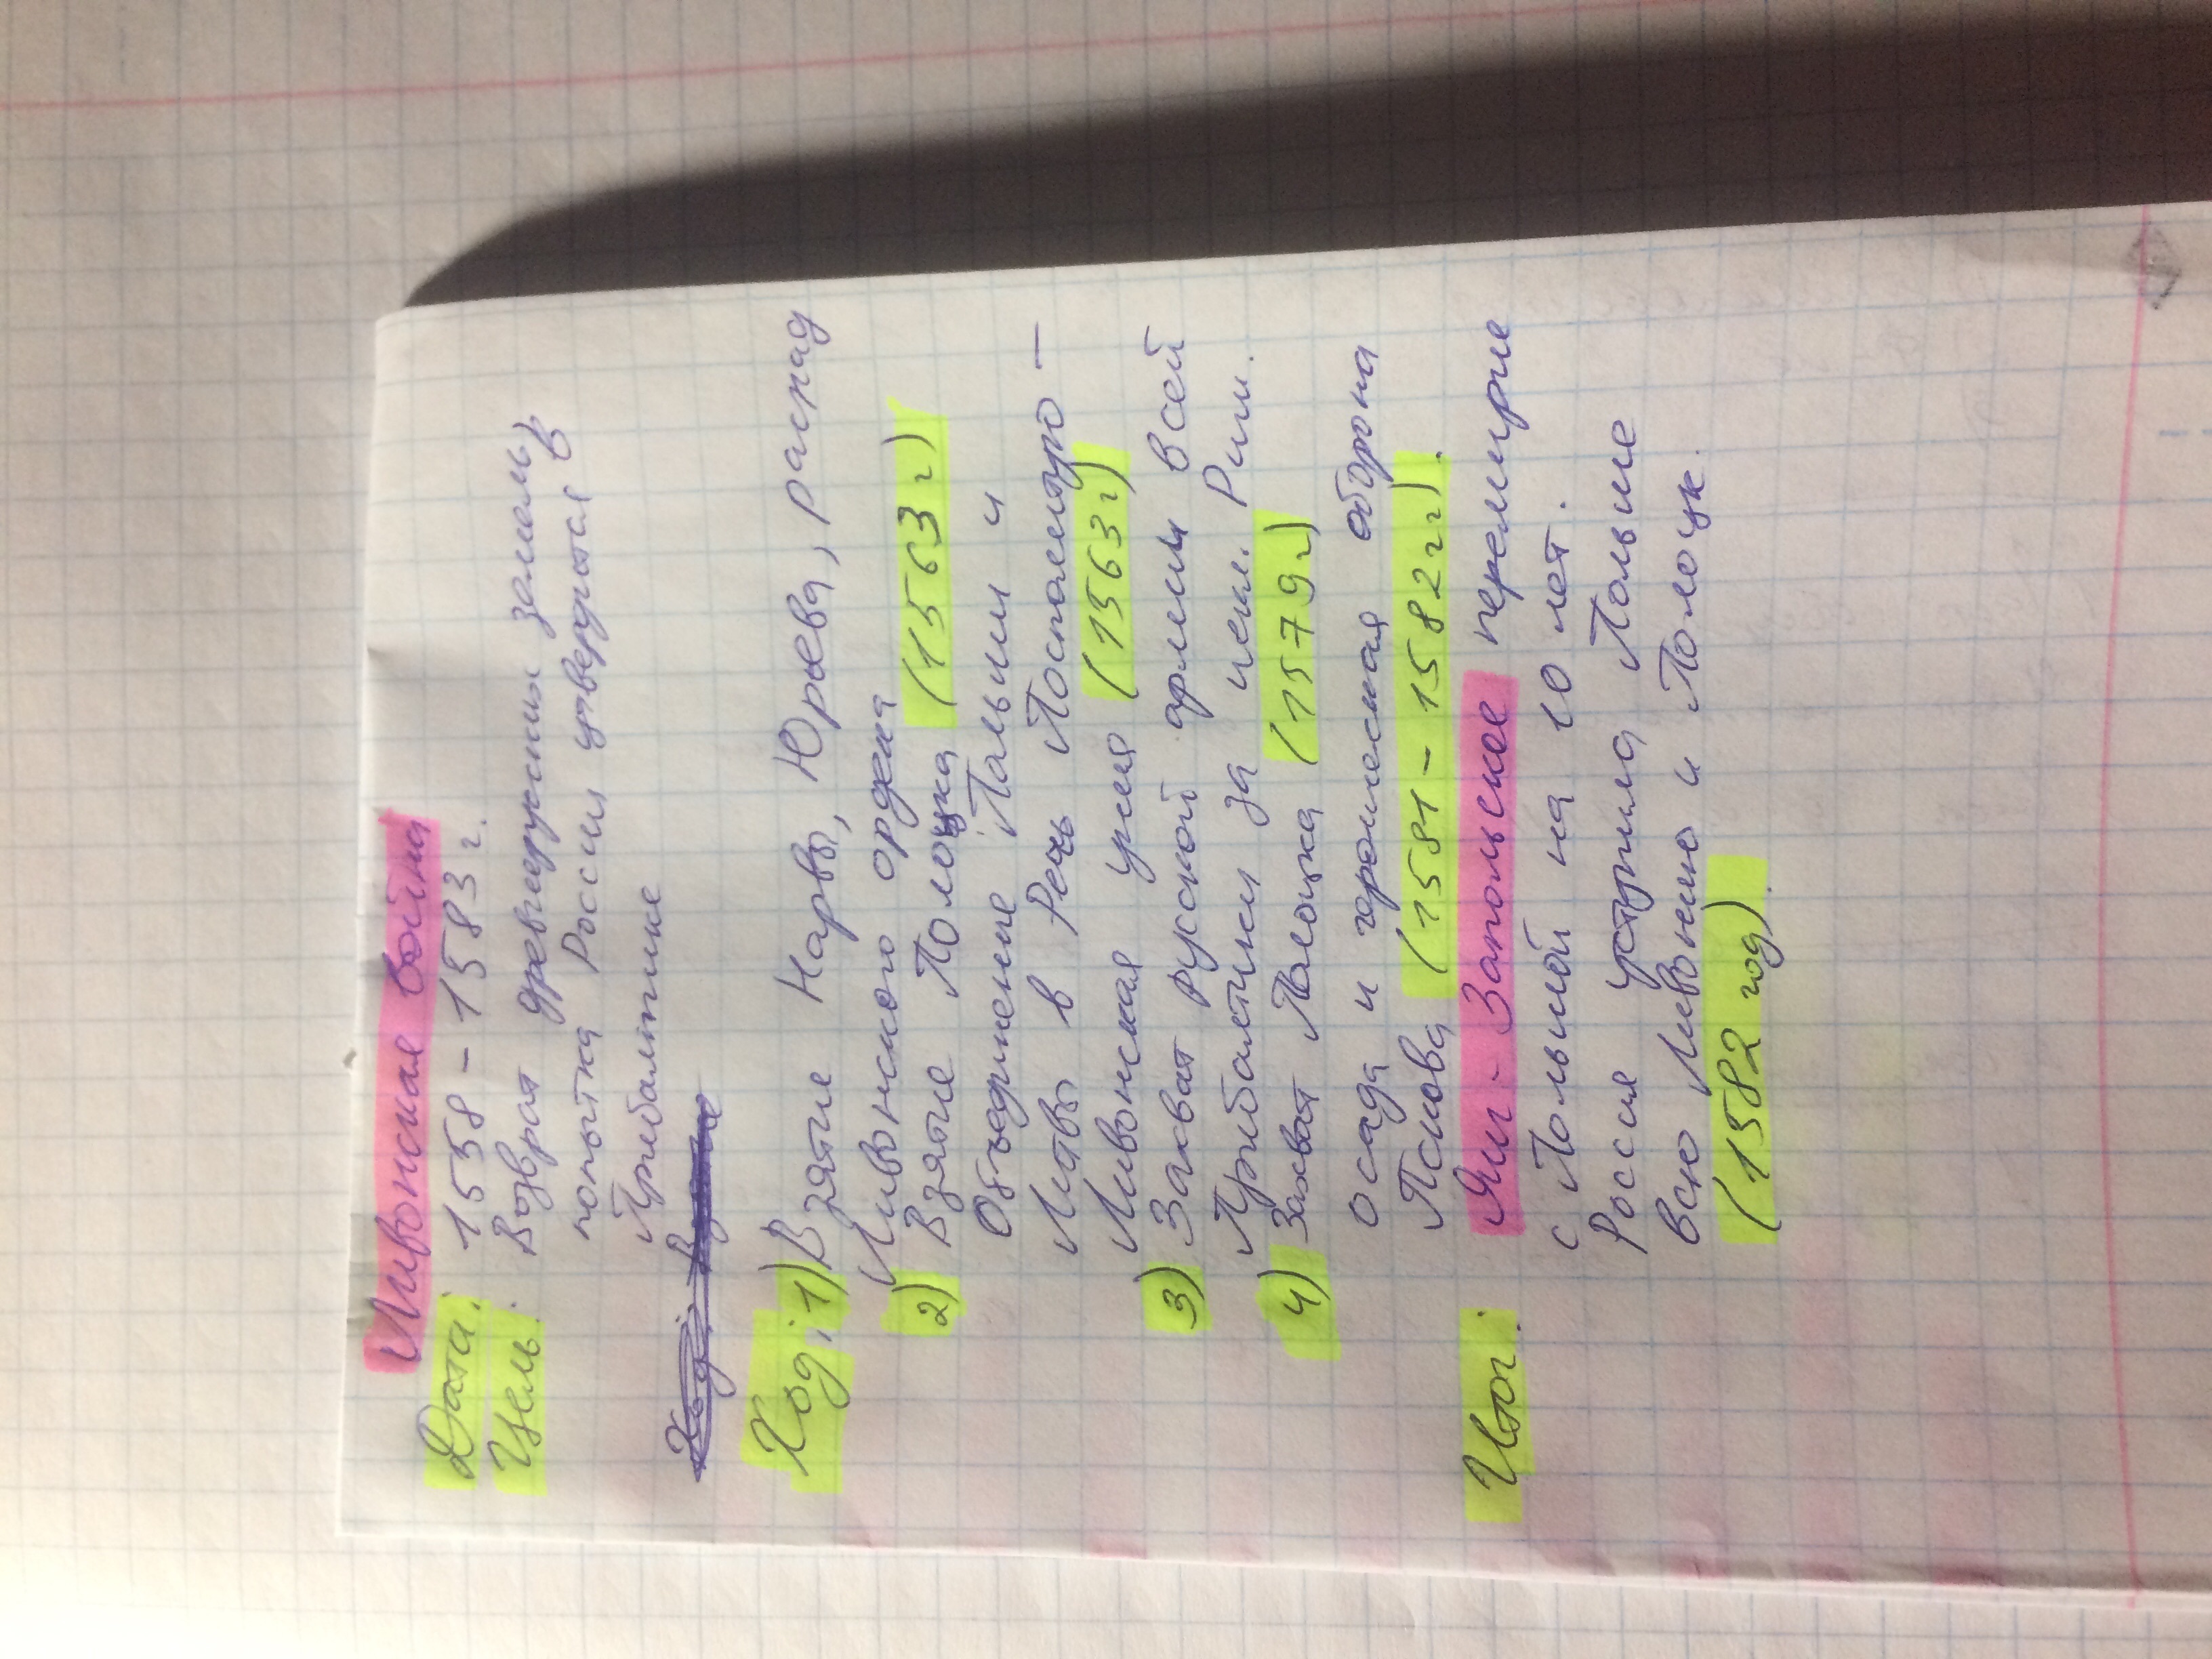 Ливонская война
Дата: 1558 - 1583 г.
Цель: Возврат древнерусских земель,
попытка России утвердится в
Прибалтике
Ход: 1) Взятие Нарвы, Юрьева, распад
Ливонского ордена
2) Взятие Полоцка (1563 г)
Объединение Польши и
Литвы в Речь Посполитую –
Ливонская уния (1563 г)
3) Захват русской армии всей
Прибалтики за искл. Риги.
4) Захват Полоцка (1579 г)
осада и героическая оборона
Пскова (1581 - 1582 г).
Итог: Ям - Запольское перемирие
с Польшей на 10 лет.
Россия уступила Польше
всю Ливонию и Полоцк.
(1582 год).